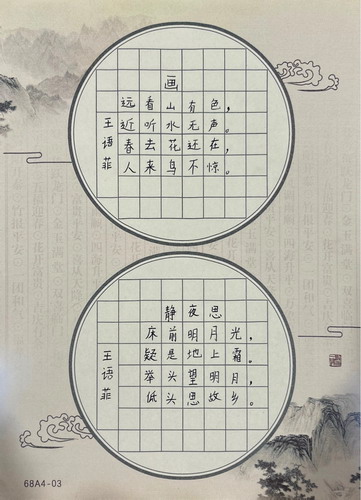 画
远看山有色，
近听水无声。
春去花还在，
人来鸟不惊。
王语菲
静夜思
床前明月光，
疑是地上霜。
举头望明月，
低头思故乡。
王语菲
68A4-03